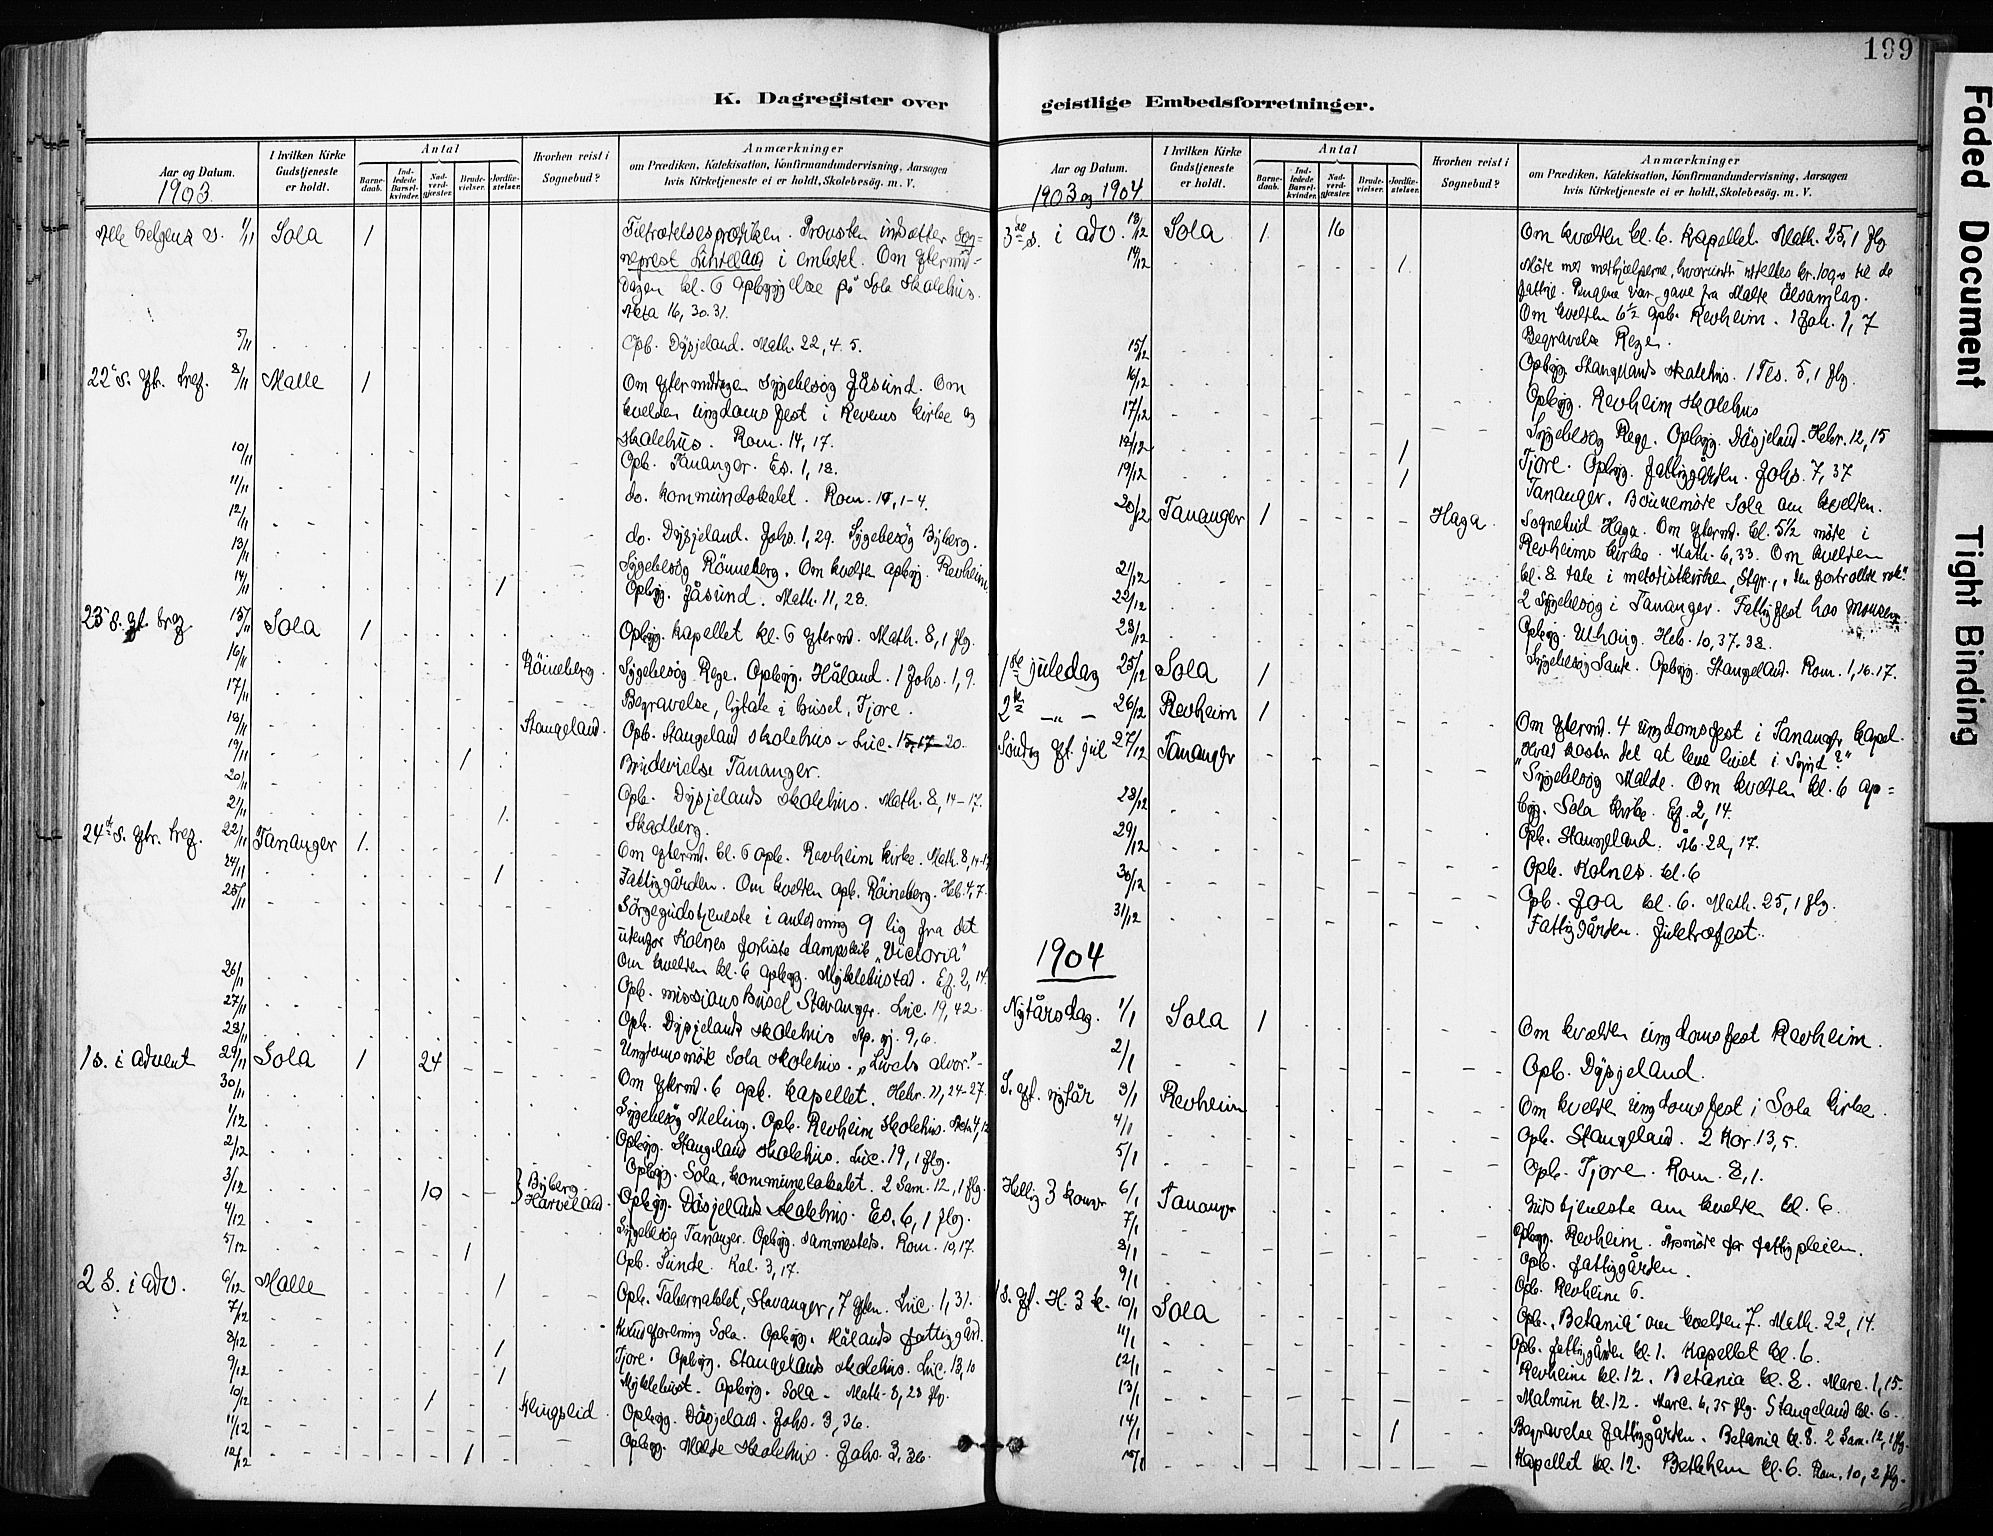 199
K. Dagregister over
geistlige Embedsforretninger.
Aar og Datum.
1903.
I hvilken Kirke Gudstjeneste er holdt.
Antal
Barnedaab.
Indledede Barselkvinder.
Nadverdgjæster.
Brudevielser.
Jordfæstelser.
Hvorhen reist i Sognebud?
Anmærkninger
om Prædiken, Katekisation, Konfirmandundervisning, Aarsagen
hvis Kirketjeneste ei er holdt, Skolebesøg. m. V.
Alle helgens d. 1/11 Sola 1 Tiltrædelsesprædiken. Provsten indsætter Sog=
neprest Lindeland i embedet. Om eftermid-
dagen kl. 6 opbyggelse på Sola Skolehus.
Akta 16, 30. 31.
5/11 Opb. Dysjeland. Math. 22, 4. 5.
22 s. eft. tref. 8/11 Malle 1 Om eftermiddagen Sygebesøg Jåsund. Om
kvelden ungdomsfest i Revems kirke og
skolehus. Rom. 14, 17.
10/11 Opb. Tananger. Es. 1, 18.
11/11 do. kommunelokalet. Rom. 11, 1-4.
12/11 do. Dysjeland. Johs. 1, 29. Sygebesøg Byberg.
13/11 Sygebesøg Rönneberg. Om kvelden opbyg. Revheim
14/11 1 Opbyg. Jåsund. Math. 11, 28.
23 s. eft. tref 15/11 Sola 1 Opbyg. kapellet kl. 6 efterm. Math. 8, 1 flg.
16/11 Röineberg. Sygebesøg Rege. Opbyg. Håland. 1 Johs. 1, 9.
17/11 Begravelse, ligtale i huset, Tjore.
18/11 Stangeland. Opb. Stangeland skolehus - Luc. 15, 17-20.
19/11 1 Brudevielse Tananger.
20/11 Opb. Dysjelands skolehus. Math. 8, 14-17.
21/11 1. Skadberg.
24 s. eftr. tref. 22/11 Tananger 1. Om efterm. kl. 6 opb. Revheim kirke. Math. 8, 14-17
24/11 1 Fattiggården. Om kvelden opb. Röineberg. Heb. 4, 7.
25/11 Sörgegudstjeneste i anledning 9 lig fra det
utenfor Kolnes forliste dampskib "Victoria"
Om kvelden kl. 6 opbyg. Myklebustad. Ef. 2, 14.
26/11 Opb. missionshuset Stavanger. Luc. 19, 42.
27/11 Opb. Dysjelands skolehus Ap. gj. 9, 6.
28/11 Ungdomsmöte Sola skolehus. "Livets alvor."
1 s. i advent 29/11 Sola 1 24 Om efterm. 6 opb. kapellet. Hebr. 11, 24-27.
30/11 Sygebesøg Meling. Opb. Revheim Skolehus. Akta 4, 12
1/12 Opbyg. Stangeland skolehus. Luc. 19, 1 flg.
2/12 Opbyg. Sola, kommunelokalet. 2 Sam. 12, 1 flg.
3/12 10 Byberg Harveland Opbyg. Dåsjelands skolehus. Es. 6, 1 flg.
4/12 Sygebesøg Tananger. Opbyg. sammesteds. Rom. 10, 17.
5/12 1 Opb. Sunde. Kol. 3, 17.
2 s. i adv. 6/12 Malle 1 Opb. Tabernaklet, Stavanger, 7 eften. Luc. 1, 31.
7/12 Opbyg. Hålands fattiggård.
8/12 1 Tjore. Opbyg. Stangelands skolehus. Luc. 13, 10
9/12 1 Myklebust. Opbyg. Sola. Math. 8, 23 flg.
10/12 1 Klingslid Opbyg. Dåsjeland. Johs. 3, 36.
11/12 Opbyg. Malde skolehus. Johs. 3, 36.
12/12 1
Aar og Datum.
1903 og 1904
I hvilken Kirke Gudstjeneste er holdt.
Antal
Barnedaab.
Indledede Barselkvinder.
Nadverdgjæster.
Brudevielser.
Jordfæstelser.
Hvorhen reist i Sognebud?
Anmærkninger
om Prædiken, Katekisation, Konfirmandundervisning, Aarsagen
hvis Kirketjeneste ei er holdt, Skolebesøg. m. V.
3de s. i adv. 13/12 Sola 1 16 Om kvelden kl. 6. kapellet. Math. 25, 1 flg
14/12 1 Møte med medhjælperne, hvorunder utdeltes kr. 100,- til de
fattige. Pengene var gave fra Malde ölsamlag.
Om kvelden 6½ opb. Revheim. 1 Joh. 1, 7
15/12 Begravelse Rege.
16/12 Opbyg. Stangelands skolehus. 1 Tes. 5, 1 flg.
17/12 Opbyg. Revheim skolehus
18/12 1 Sygebesøg Rege. Opbyg. Dåsjeland. Hebr. 12, 15
19/12 1 Tjore. Opbyg. fattiggården. Johs. 7, 37
Tananger. Bönnemöte Sola om kvelden.
20/12 Tananger 1 Haga. Sognebud Haga. Om efterm. kl. 5½ möte i
Revheims kirke. Math. 6, 33. Om kvelden
kl. 8 tale i metodistkirke, Stgr.,
21/12 2 Sygebesøg i Tananger. Fattigfest hos
22/12 Opbyg. Uthaug. Heb. 10, 37. 38.
23/12 Sygebesøg Sande. Opbyg. Stangeland. Rom. 1, 16. 17.
1ste juledag 25/12 Sola 1
2den -"- 26/12 Revheim 1 Om efterm. 4 ungdomsfest i Tananger kapel.
Söndag eft. jul 27/12 Tananger "Hvad koster det at leve livet i Synd?"
Sygebesøg Malde. Om kvelden kl. 6 op=
28/12 byg. Sola kirke. Ef. 2, 14.
29/12 Opb. Stangeland. Åb. 22, 17.
30/12 Opb. Kolnes. kl. 6
31/12 Opb. Joa kl. 6. Math. 25, 1 flg.
Fattiggården. Juletræfest.
1904
Nytårsdag. 1/1 Sola 1 Om kvelden ungdomsfest Revheim.
2/1 Opb. Dysjeland.
S. eft. nytår 3/1 Revheim Om kvelden ungdomsfest i Sola kirke.
4/1 Opb. Stangeland. 2 Kor. 13, 5.
5/1 Opb. Tjore. Rom. 8, 1.
Hellig 3 konger 6/1 Tananger Gudstjeneste om kvelden kl. 6.
7/1 Opbyg. Revheim. Årsmöte for fattigpleien.
8/1 Opb. fattiggården.
9/1 Opb. Revheim 6.
1 s. ef. H. 3 k. 10/1 Sola Opb. "Betania" om kvelden 7. Math. 22, 14.
11/1 Opb. fattiggården kl. 1. Kapellet kl. 6.
12/1 Revheim kl. 12. Betania kl. 8. Marc. 1, 15.
13/1 Malmin kl. 12. Marc. 6, 35 flg. Stangeland kl. 6.
14/1 1 Begravelse fattiggården. Betania kl. 8. 2 Sam. 12, 1 flg.
15/1 Kapellet kl. 12. Betlehem kl. 6. Rom. 10, 2 flg.
Faded Document
Tight Binding